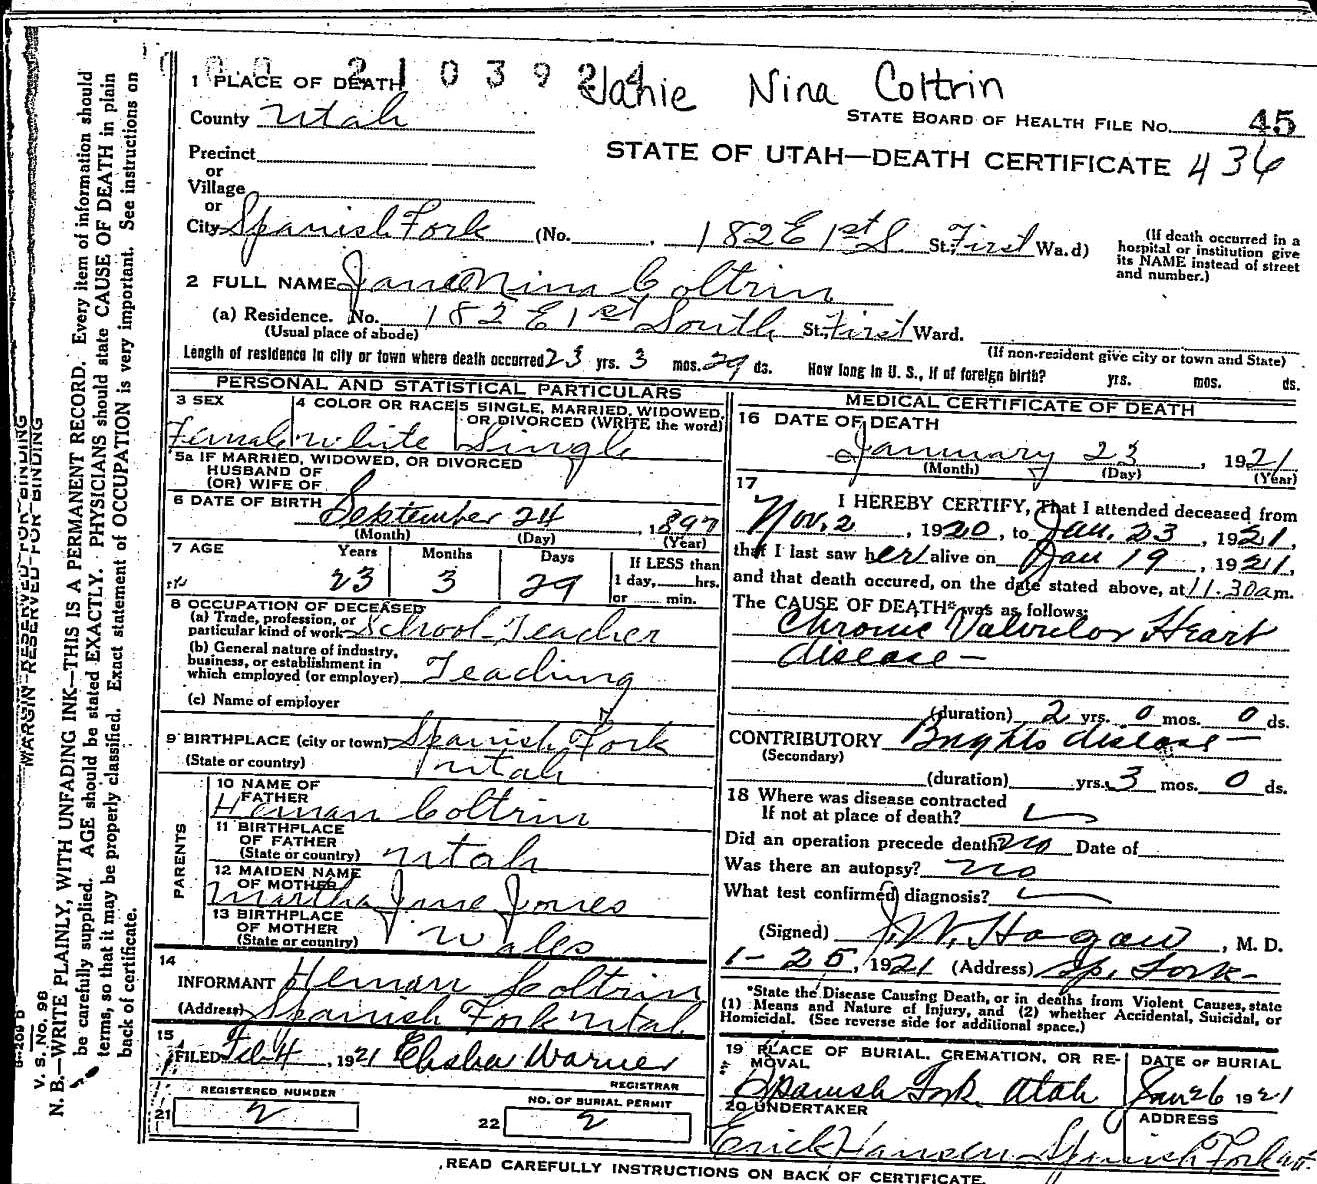 000 21 0392
Janie Nina Coltrin
1 PLACE OF DEATH
County Utah
STATE BOARD OF HEALTH FILE No. 45
Precinct
STATE OF UTAH—DEATH CERTIFICATE 436
or
Village
or
City Spanish Fork (No. 182 E 1st S. St. First Wa.d)
(If death occurred in a hospital or institution give its NAME instead of street and number.)
2 FULL NAME Jane Nina Coltrin
(a) Residence. No. 182 E 1st South St. First Ward.
(Usual place of abode)
(If non-resident give city or town and State)
Length of residence in city or town where death occurred 23 yrs. 3 mos. 29 ds. How long in U. S., if of foreign birth? yrs. mos. ds.
PERSONAL AND STATISTICAL PARTICULARS
3 SEX
Female
4 COLOR OR RACE
White
5 SINGLE, MARRIED, WIDOWED, OR DIVORCED (WRITE the word)
Single
5a IF MARRIED, WIDOWED, OR DIVORCED
HUSBAND OF
(OR) WIFE OF
6 DATE OF BIRTH September 24, 1897
(Month) (Day) (Year)
7 AGE Years Months Days If LESS than
23 3 29 1 day, hrs.
or min.
8 OCCUPATION OF DECEASED
(a) Trade, profession, or
particular kind of work School Teacher
(b) General nature of industry,
business, or establishment in
which employed (or employer) Teaching
(c) Name of employer
9 BIRTHPLACE (city or town) Spanish Fork
(State or country) Utah
PARENTS
10 NAME OF
FATHER
Heman Coltrin
11 BIRTHPLACE
OF FATHER
(State or country) Utah
12 MAIDEN NAME
OF MOTHER
Martha Jane Jones
13 BIRTHPLACE
OF MOTHER
(State or country) Wales
14
INFORMANT Heman Coltrin
(Address) Spanish Fork Utah
15
FILED Feb 4, 1921 Elisha Warner
REGISTRAR
REGISTERED NUMBER
21 2
NO. OF BURIAL PERMIT
22 2
MEDICAL CERTIFICATE OF DEATH
16 DATE OF DEATH
January 23, 1921
(Month) (Day) (Year)
17
I HEREBY CERTIFY, That I attended deceased from
Nov. 2, 1920, to Jan. 23, 1921,
that I last saw her alive on Jan 19, 1921,
and that death occured, on the date stated above, at 11.30am.
The CAUSE OF DEATH* was as follows:
Chronic Valvular Heart
disease—
(duration) 2 yrs. 0 mos. 0 ds.
CONTRIBUTORY Brights disease—
(Secondary)
(duration) yrs. 3 mos. 0 ds.
18 Where was disease contracted
If not at place of death?
Did an operation precede death? no Date of
Was there an autopsy? no
What test confirmed diagnosis?
(Signed) J. W. Hagan, M. D.
1-25, 1921 (Address) Sp. Fork-
*State the Disease Causing Death, or in deaths from Violent Causes, state
(1) Means and Nature of Injury, and (2) whether Accidental, Suicidal, or
Homicidal. (See reverse side for additional space.)
19 PLACE OF BURIAL, CREMATION, OR RE-
MOVAL
Spanish Fork Utah
DATE OF BURIAL
Jan 26 1921
20 UNDERTAKER
Erick Hansen
ADDRESS
Spanish Fork ut.
READ CAREFULLY INSTRUCTIONS ON BACK OF CERTIFICATE.
MARGIN RESERVED FOR BINDING
V. S. No. 98
N. B.—WRITE PLAINLY, WITH UNFADING INK—THIS IS A PERMANENT RECORD. Every item of information should
be carefully supplied. AGE should be stated EXACTLY. PHYSICIANS should state CAUSE OF DEATH in plain
terms, so that it may be properly classified. Exact statement of OCCUPATION is very important. See instructions on
back of certificate.